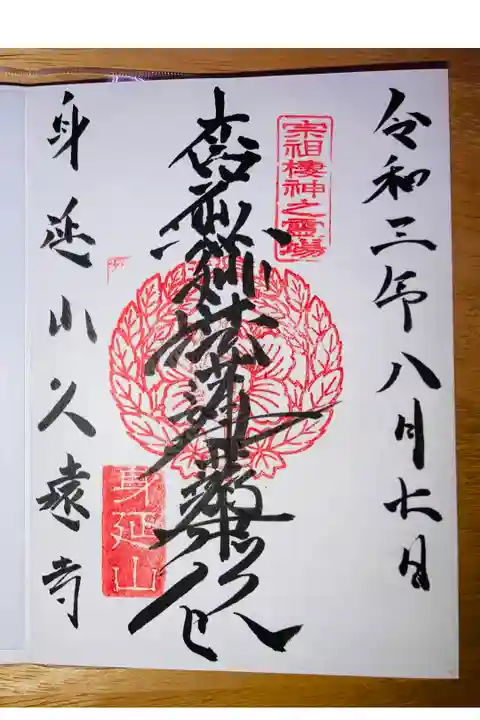 令和三年八月十六日
宗祖棲神之靈場
南無妙法蓮華経
身延山
身延山久遠寺